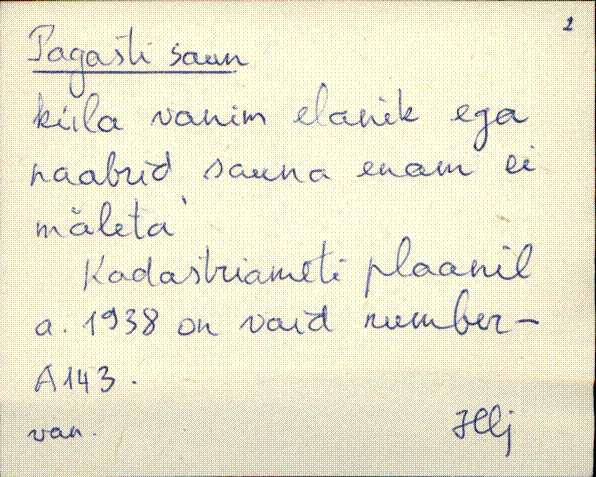 2
Pagasti saun
küla vanim elanik ega
naabrid sauna enam ei
mäleta
Kadastriameti plaanil
a. 1938 on vaid number-
A143.
van. Hlj